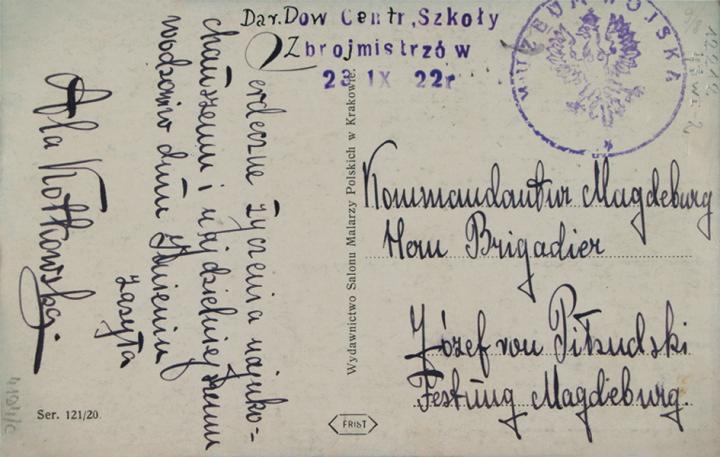 Dar. Dow Centr, Szkoły
Zbrojmistrzów
23 IX 22r
MUZEUM WOJSKA
Serdeczne życzenia najuko-
chańszemu i najdzielniejszemu
wodzowi w dniu Imienin
zasyła
Ala Kotkowska.
Wydawnictwo Salonu Malarzy Polskich w Krakowie.
Kommandantur Magdeburg
Herrn Brigadier
Józef von Piłsudski
Festung Magdeburg.
Ser. 121/20.
FRIST